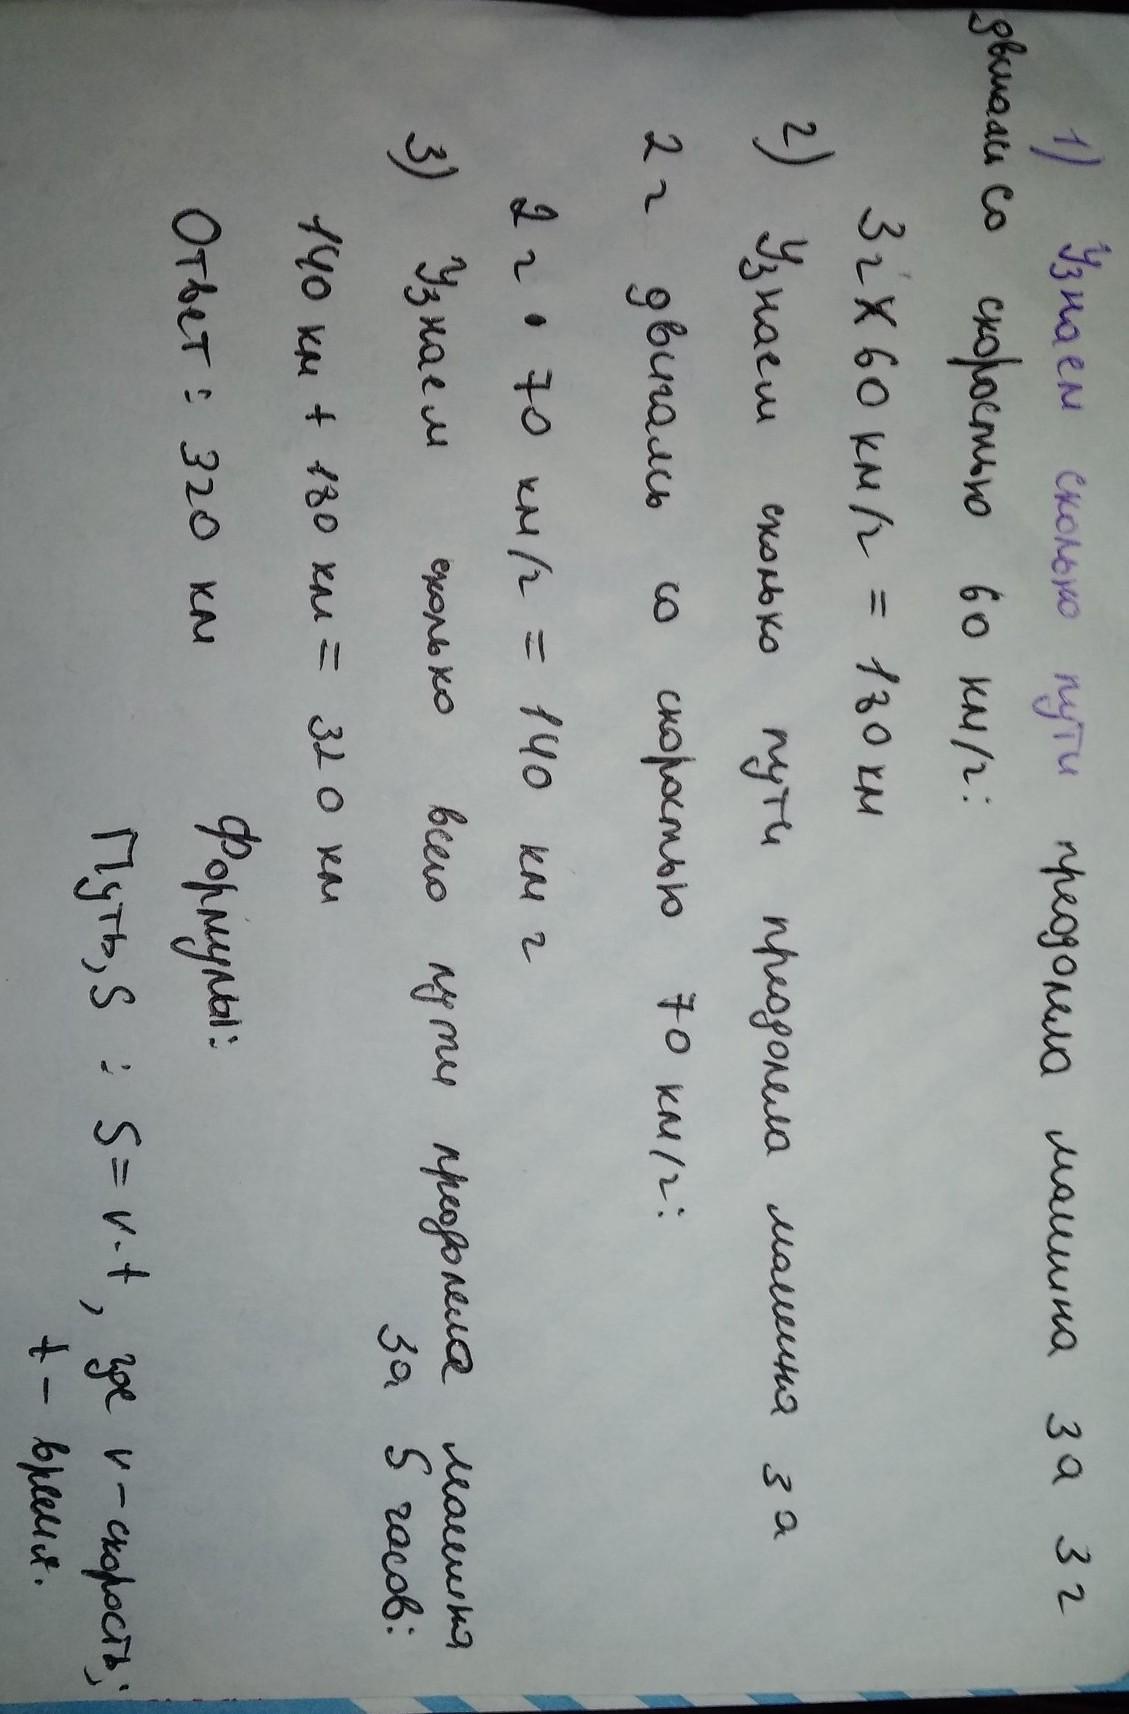 1) Узнаем сколько пути преодолела машина за 3 ч
двигаясь со скоростью 60 км/ч:
3ч x 60 км/ч = 180 км
2) Узнаем сколько пути преодолела машина за
2 ч двигаясь со скоростью 70 км/ч:
2 ч • 70 км/ч = 140 км ч
3) Узнаем сколько всего пути преодолела машина
за 5 часов:
140 км + 180 км = 320 км
Ответ: 320 км
Формулы:
Путь, S : S = v · t, где v – скорость;
t – время.